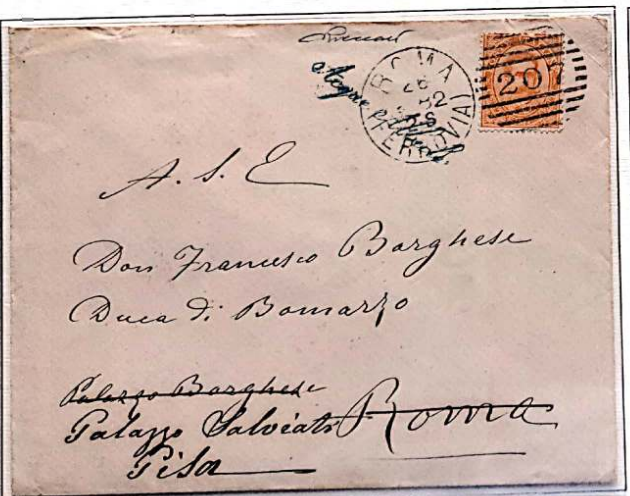 ROMA
26
82
2S
(FERROVIA)
207
A. S. E
Don Francesco Borghese
Duca di Bomarzo
Palazzo Borghese
Palazzo Salviati Roma
Pisa